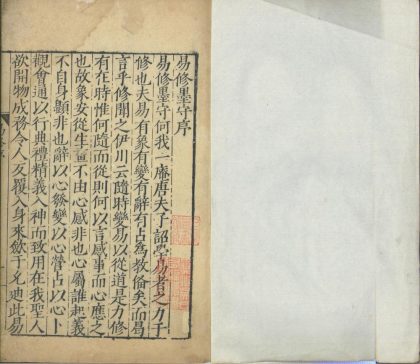 易修墨守序
易修墨守何我一庵唐夫子詔學易者之力于
修也夫易有象有變有辭有占為教備矣而曷
言乎修聞之伊川云隨時變易以從道是乃修
有在時惟何隨而從則何以言感事而心應之
也故象安從生畫不由心感非也心屬誰起義
不自身顯非也辭以心發變以心營占以心卜
觀會通以行典禮精義入神而致用在我聖人
欲開物成務令人反覆入身來歛于允迪此易